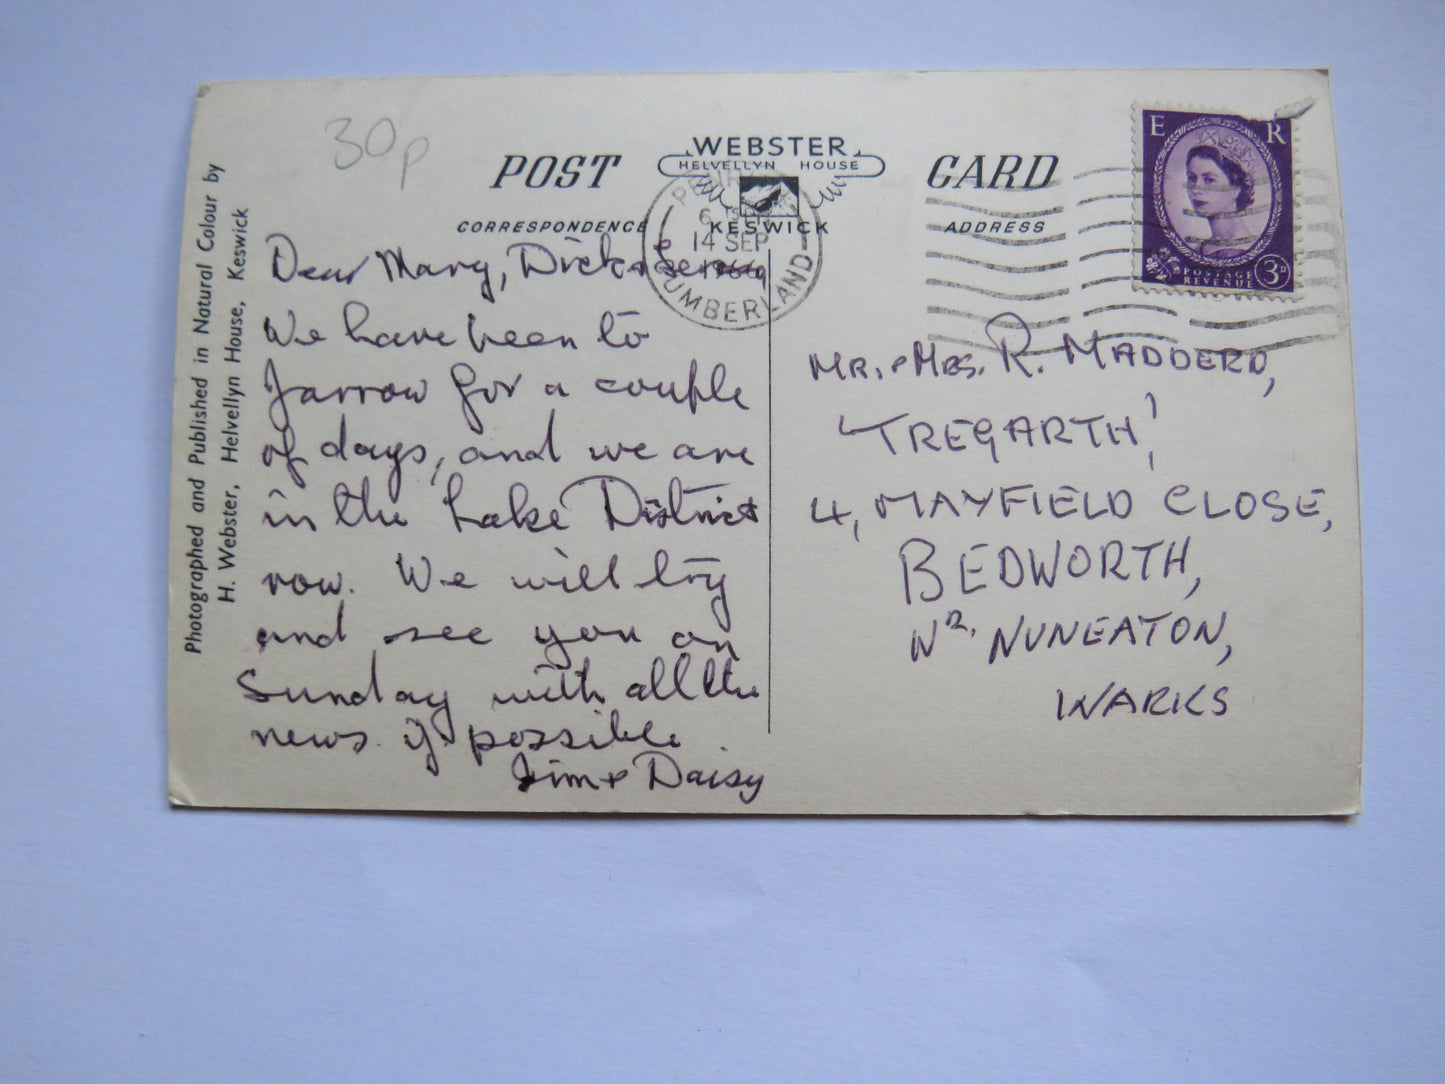 30p
POST CARD
WEBSTER
HELVELLYN HOUSE
KESWICK
CORRESPONDENCE
ADDRESS
Photographed and Published in Natural Colour by
H. Webster, Helvellyn House, Keswick
14 SEP
1966
CUMBERLAND
E R
POSTAGE
REVENUE
3D
Dear Mary, Dick +
We have been to
Jarrow for a couple
of days, and we are
in the Lake District
now. We will try
and see you on
Sunday with all the
news if possible.
Jim + Daisy
MR. + MRS. R. MADDERD,
'TREGARTH',
4, MAYFIELD CLOSE,
BEDWORTH,
NR. NUNEATON,
WARKS